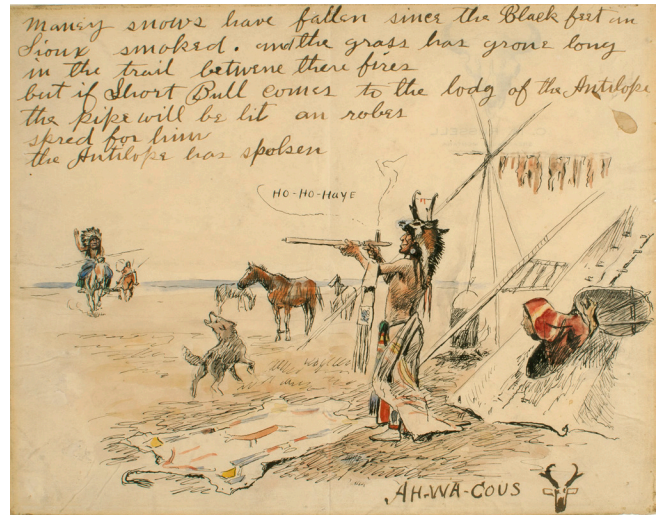 Maney snows have fallen since the Black feet an
Sioux smoked. and the grass has grone long
in the trail betwene there fires
but if Short Bull comes to the lodg of the Antilope
the pipe will be lit an robes
spred for him
the Antilope has spoken
HO-HO-HAYE
AH-WA-COUS